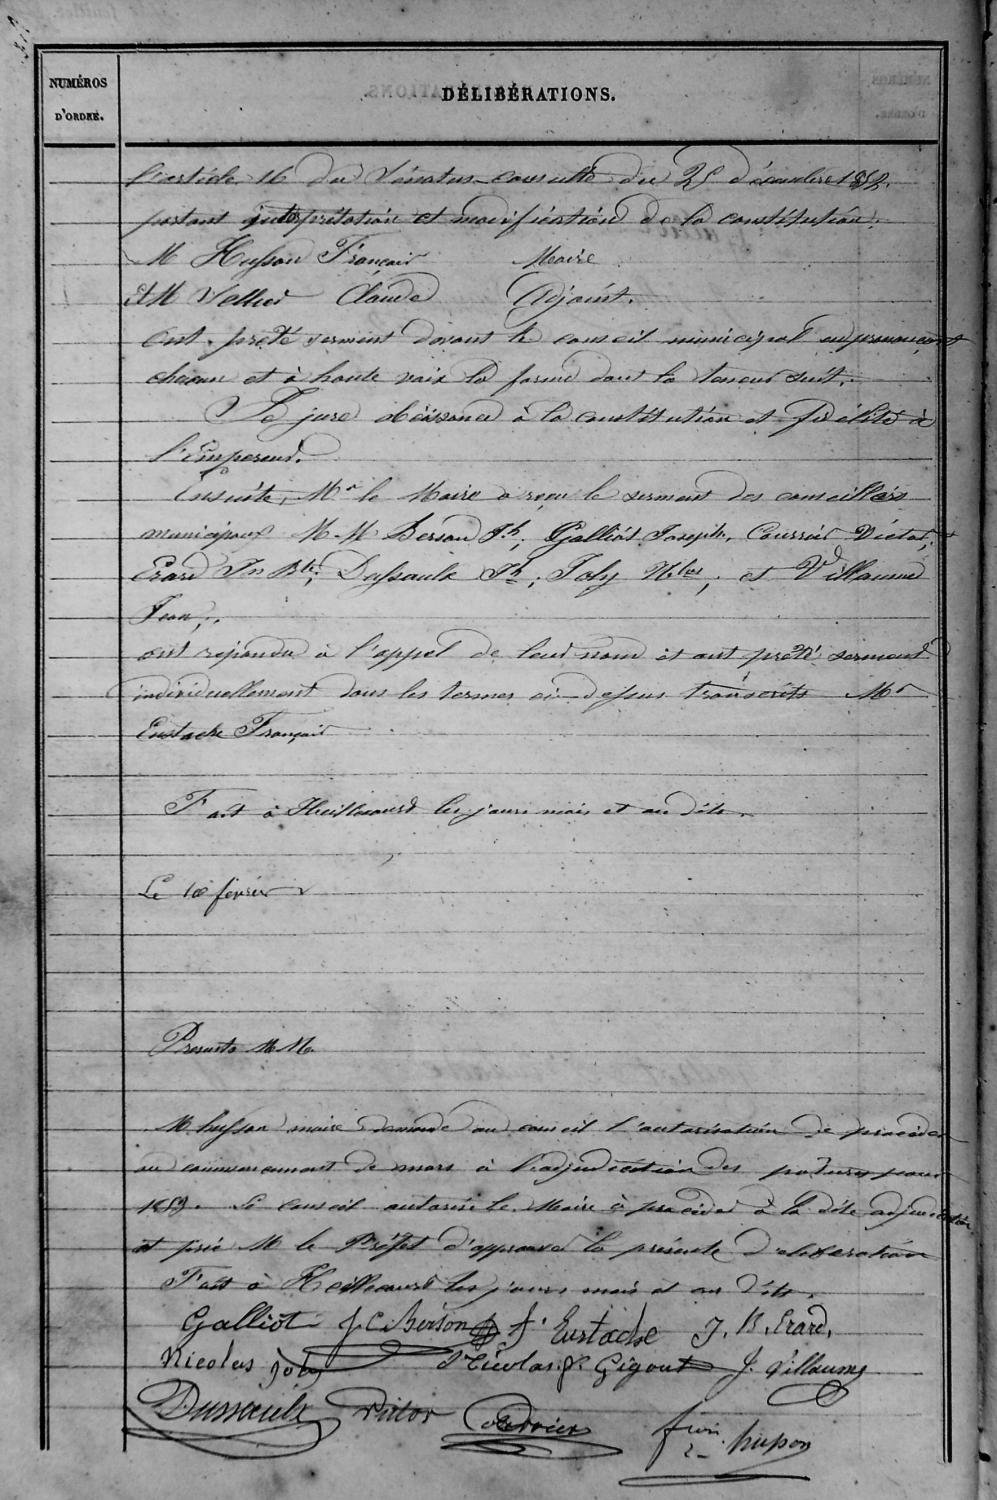 NUMÉROS D'ORDRE.
DÉLIBÉRATIONS.
l'article 16 du Sénatus-consulte du 25 décembre 1852.
portant interprétation et modification de la constitution.
M Husson François Maire
et M Vallier Claude Adjoint.
ont prêté serment devant le conseil municipal en prononçant
chacun et à haute voix la forme dont la teneur suit.
Je jure obéissance à la constitution et fidélité à
l'Empereur.
Ensuite, Mr le Maire a reçu le serment des conseillers
municipaux M.M Berson Jh; Galliot Joseph, Courrier Victor;
Erard Jn Bte; Dussaulx Jh; Joly Nlas; et Villaume
Jean;.
ont répondu à l'appel de leur nom et ont prêté serment
individuellement dans les termes ci-dessus transcrits Mr
Eustache François
Fait à Heillecourt les jours mois et an dits.
Le 10 février
Presents M.M.
M. husson maire demande au conseil l'autorisation de procéder
au commencement de mars à l'adjudication des patures pour
Le conseil autorise le Maire à procéder à la dite adjudication
et prie M le Préfet d'approuver la présente délibération
Fait à Heillecourt les jours mois et an dits.
Galliot J C Berson f. Eustache J. B. Erard.
Nicolas joly Nicolas Gigout J. Villaume
Dussaulx Victor Courrier husson